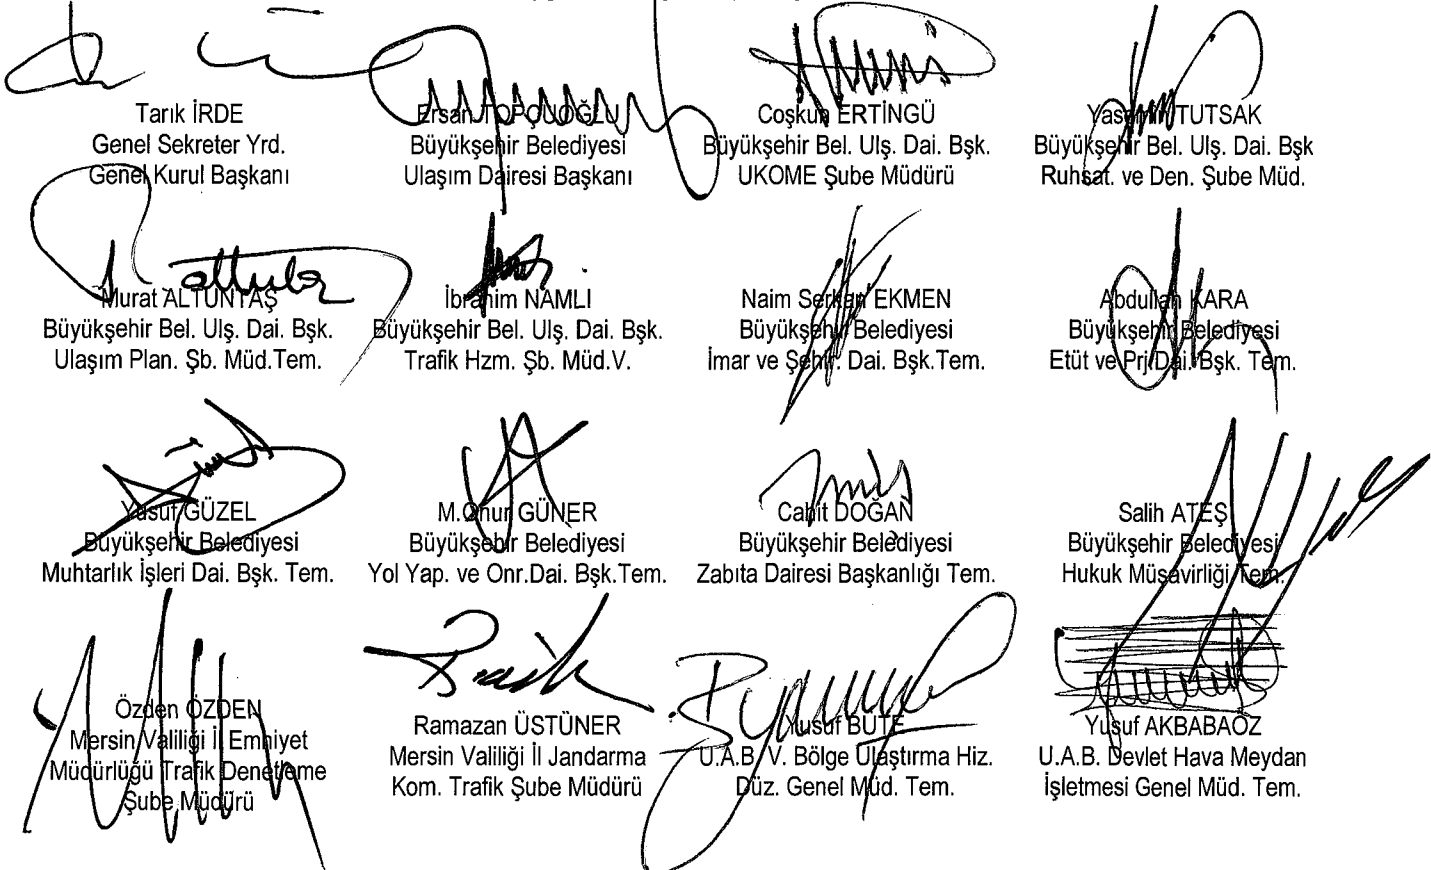 Tarık İRDE
Genel Sekreter Yrd.
Genel Kurul Başkanı
Ersan TOPÇUOĞLU
Büyükşehir Belediyesi
Ulaşım Dairesi Başkanı
Coşkun ERTİNGÜ
Büyükşehir Bel. Ulş. Dai. Bşk.
UKOME Şube Müdürü
TUTSAK
Büyükşehir Bel. Ulş. Dai. Bşk
Ruhsat. ve Den. Şube Müd.
Murat ALTUNTAŞ
Büyükşehir Bel. Ulş. Dai. Bşk.
Ulaşım Plan. Şb. Müd.Tem.
İbrahim NAMLI
Büyükşehir Bel. Ulş. Dai. Bşk.
Trafik Hzm. Şb. Müd.V.
Naim Serkan EKMEN
Büyükşehir Belediyesi
İmar ve Şehir. Dai. Bşk.Tem.
Abdullah KARA
Büyükşehir Belediyesi
Etüt ve Prj.Dai. Bşk. Tem.
Yusuf GÜZEL
Büyükşehir Belediyesi
Muhtarlık İşleri Dai. Bşk. Tem.
M.Onur GÜNER
Büyükşehir Belediyesi
Yol Yap. ve Onr.Dai. Bşk.Tem.
Cahit DOĞAN
Büyükşehir Belediyesi
Zabıta Dairesi Başkanlığı Tem.
Salih ATEŞ
Büyükşehir Belediyesi
Hukuk Müşavirliği Tem.
Özden ÖZDEN
Mersin Valiliği İl Emniyet
Müdürlüğü Trafik Denetleme
Şube Müdürü
Ramazan ÜSTÜNER
Mersin Valiliği İl Jandarma
Kom. Trafik Şube Müdürü
Yusuf BÜTE
U.A.B. V. Bölge Ulaştırma Hiz.
Düz. Genel Müd. Tem.
Yusuf AKBABAÖZ
U.A.B. Devlet Hava Meydan
İşletmesi Genel Müd. Tem.